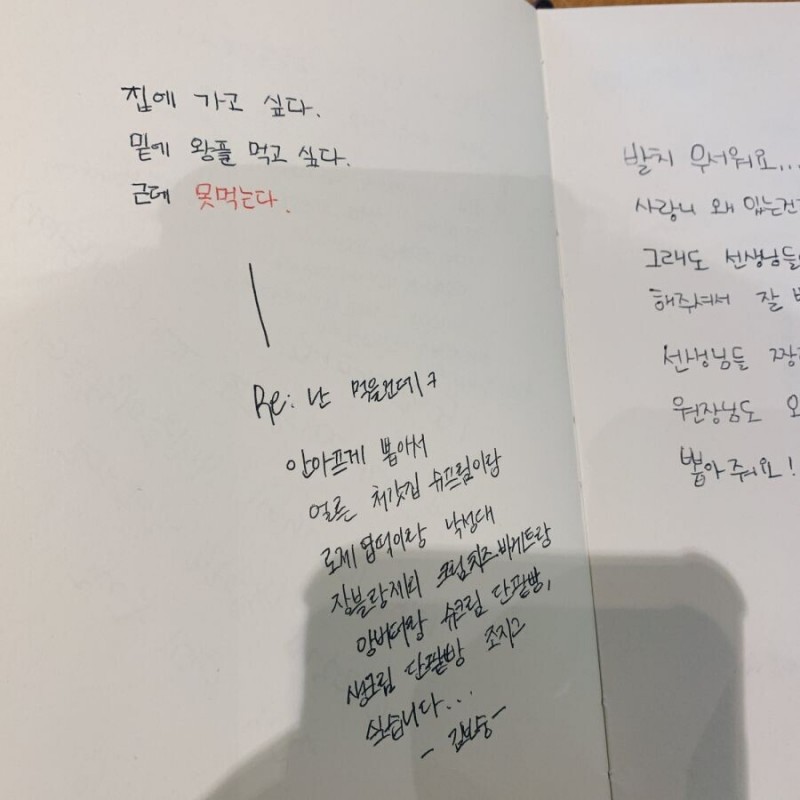 집에 가고 싶다.
밑에 왕플 먹고 싶다.
근데 못먹는다.
Re: 난 먹을건데ㅋ
안아프게 뽑아서
얼른 처갓집 슈프림이랑
로제엽떡이랑 낙성대
쟝블랑제리 크림치즈바게트랑
앙버터랑 슈크림 단팥빵,
생크림 단팥빵 조지고
싶습니다...
발치 무서워요...
사랑니 왜 있는건
그래도 선생님들
해주셔서 잘
선생님들
원장님도
뽑아줘요!